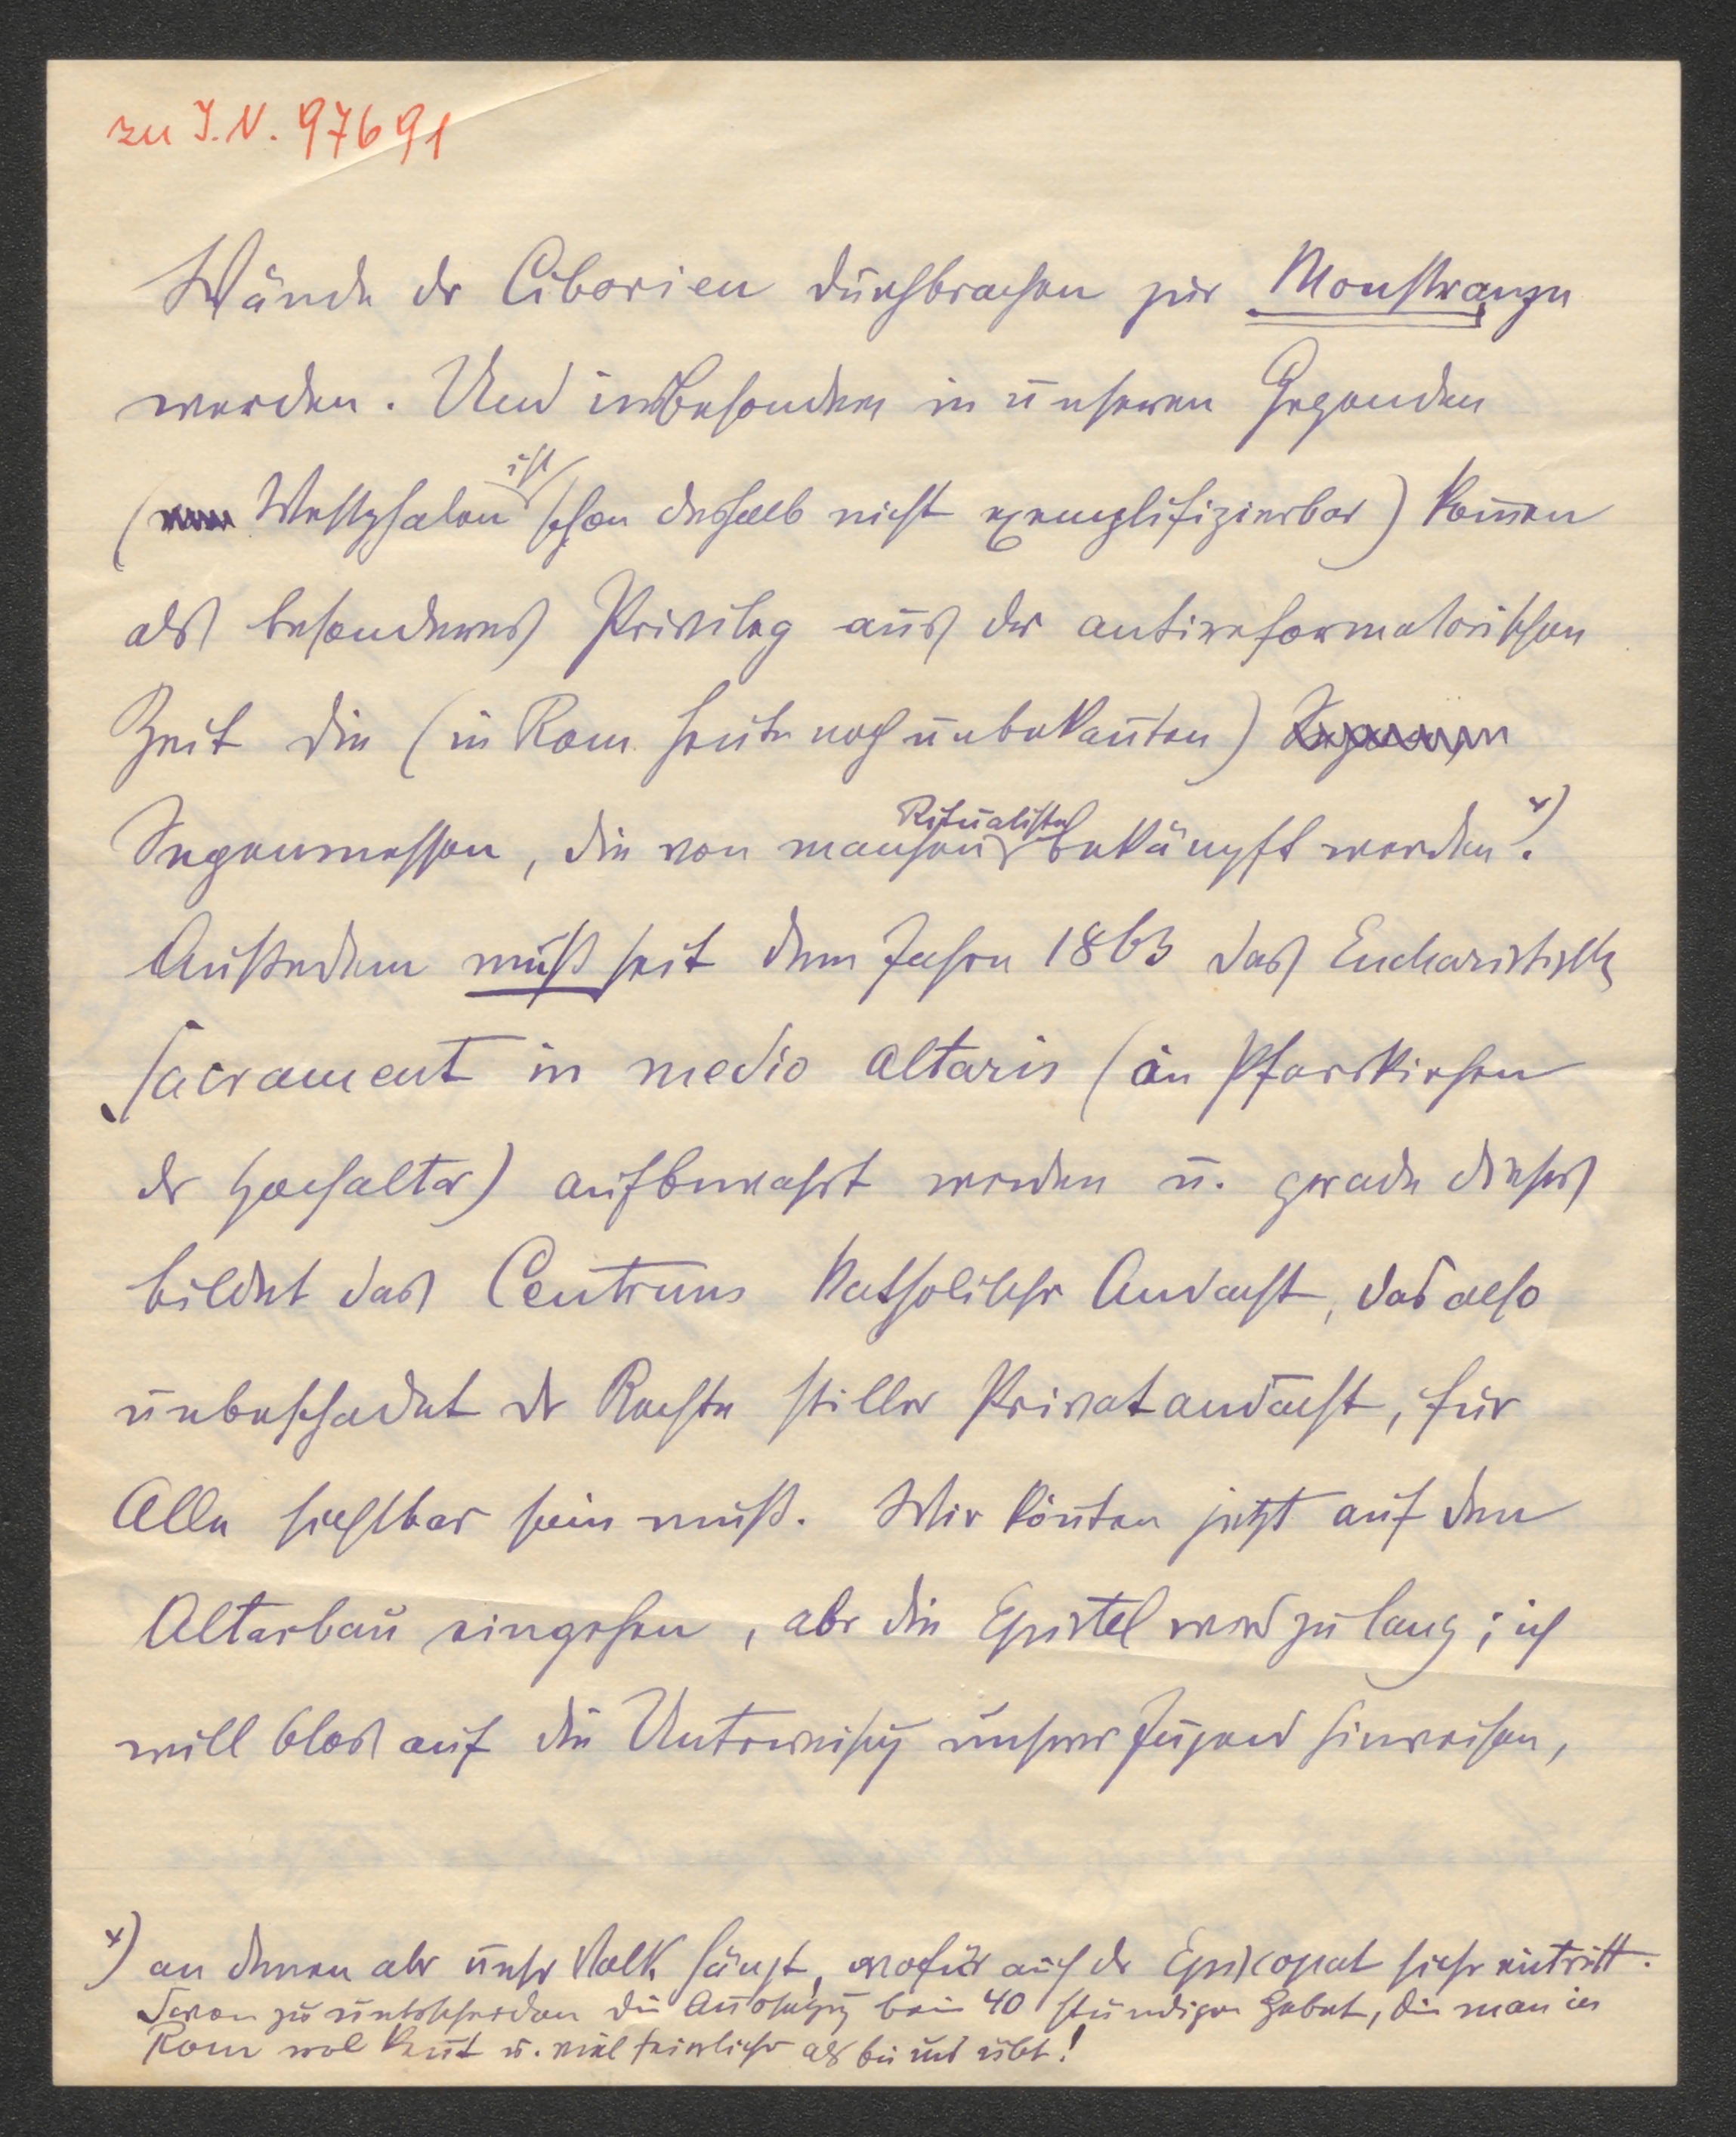 zu I.N. 97691
Wände der Ciborien durchbrochen zur Monstranze
werden. Und insbesondere in unseren Gegenden
(Westphalen ist schon deshalb nicht exemplifizierbar) kom̅en
als besonderes Privileg aus der antireformatorischen
Zeit die (in Rom heute noch unbekan̅ten)
Segenmessen, die von manchen Ritualisten bekämpft werden.*)
Außerdem muß seit dem Jahre 1863 das Eucharistische
Sacrament in medio altaris (in Pfarrkirchen
der Hochaltar) aufbewahrt werden u. gerade dieses
bildet das Centrum katholischer Andacht, das also
unbeschadet der Rechte stiller Privatandacht, für
Alle sichtbar sein muß. Wir kön̅ten jetzt auf den
Altarbau eingehen, aber die Epistel wird zu lang; ich
will blos auf die Unterweisung unserer Jugend hinweisen,
*) an denen aber unser Volk hängt, wofür auch der Episcopat sicher eintritt.
Davon zu unterscheiden die Aussetzung beim 40 stündigen Gebet, die man in
Rom wol ken̅t u. viel feierlicher als bei uns übt!